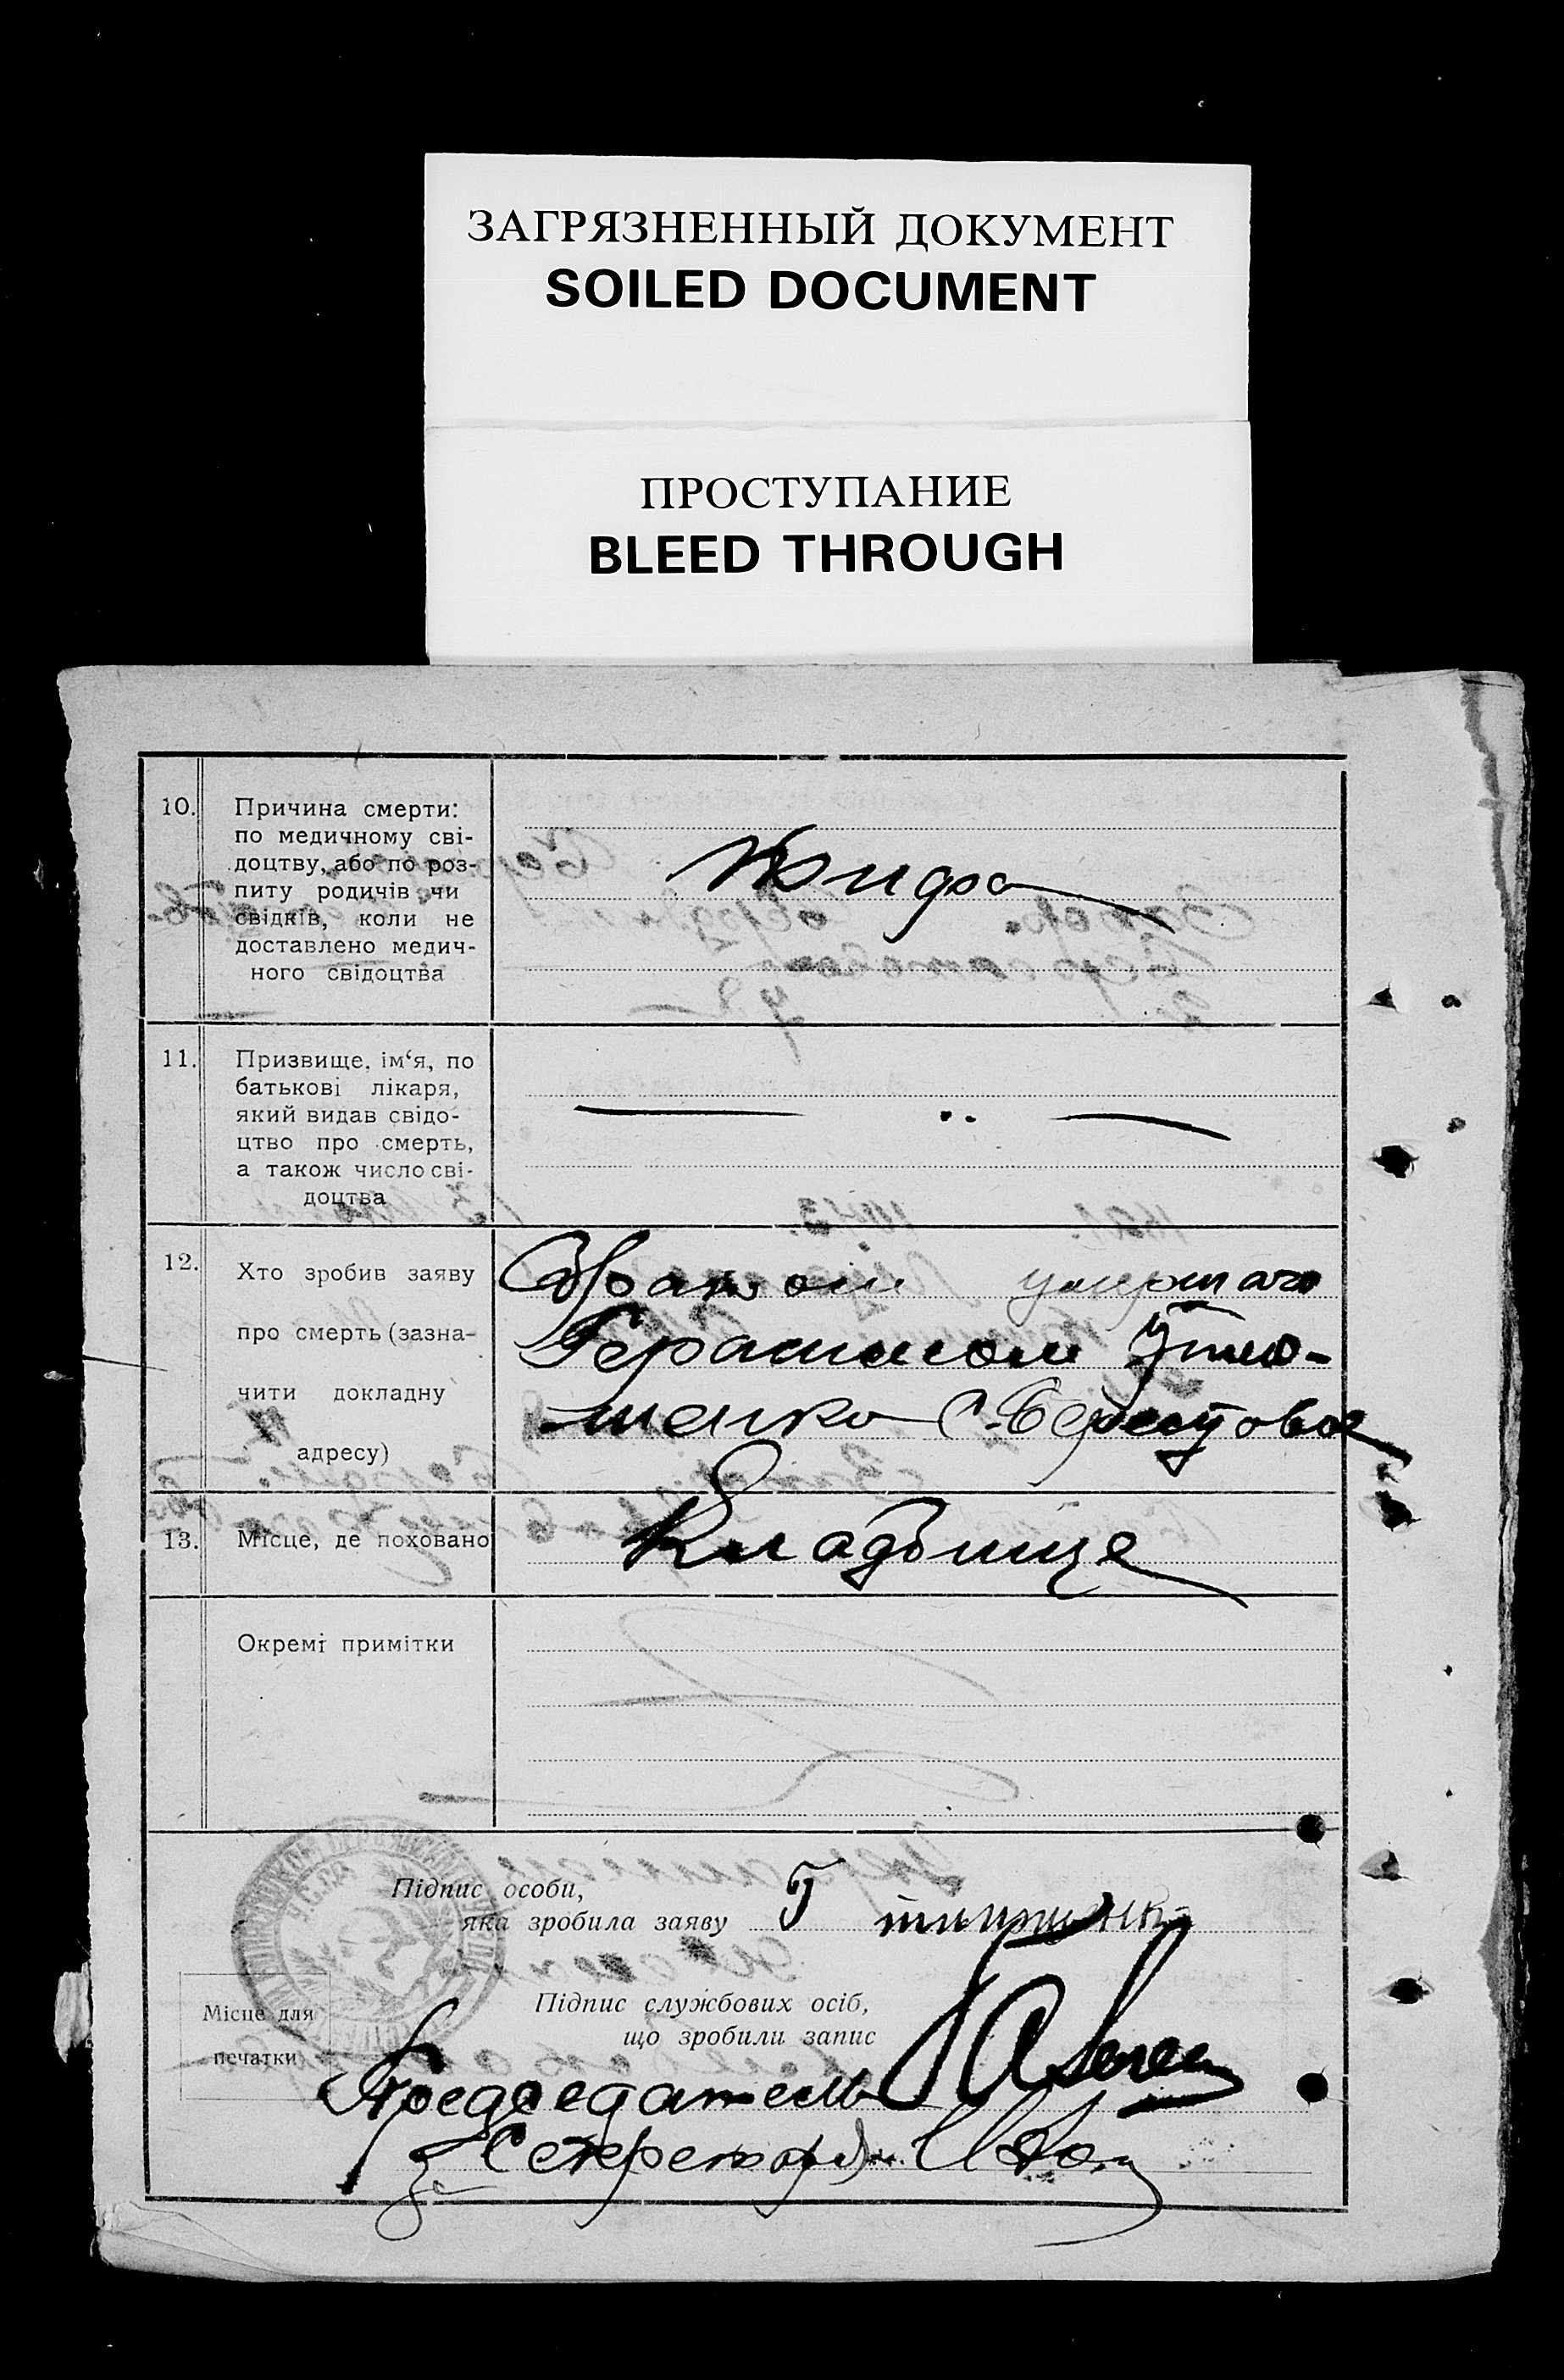 ЗАГРЯЗНЕННЫЙ ДОКУМЕНТ
SOILED DOCUMENT
ПРОСТУПАНИЕ
BLEED THROUGH
10.
Причина смерти:
по медичному сві-
доцтву, або по роз-
питу родичів чи
свідків, коли не
доставлено медич-
ного свідоцтва
11.
Призвище, ім‘я, по
батькові лікаря,
який видав свідо-
цтво про смерть,
а також число сві-
доцтва
12.
Хто зробив заяву
про смерть (зазна-
чити докладну
адресу)
Братом умершаго
Герасимом
с. Берестовое
13.
Місце, де поховано
Кладбище
Окремі примітки
Підпис особи,
яка зробила заяву
Місце для
печатки
Підпис службових осіб,
що зробили запис
Председатель
Секретарь